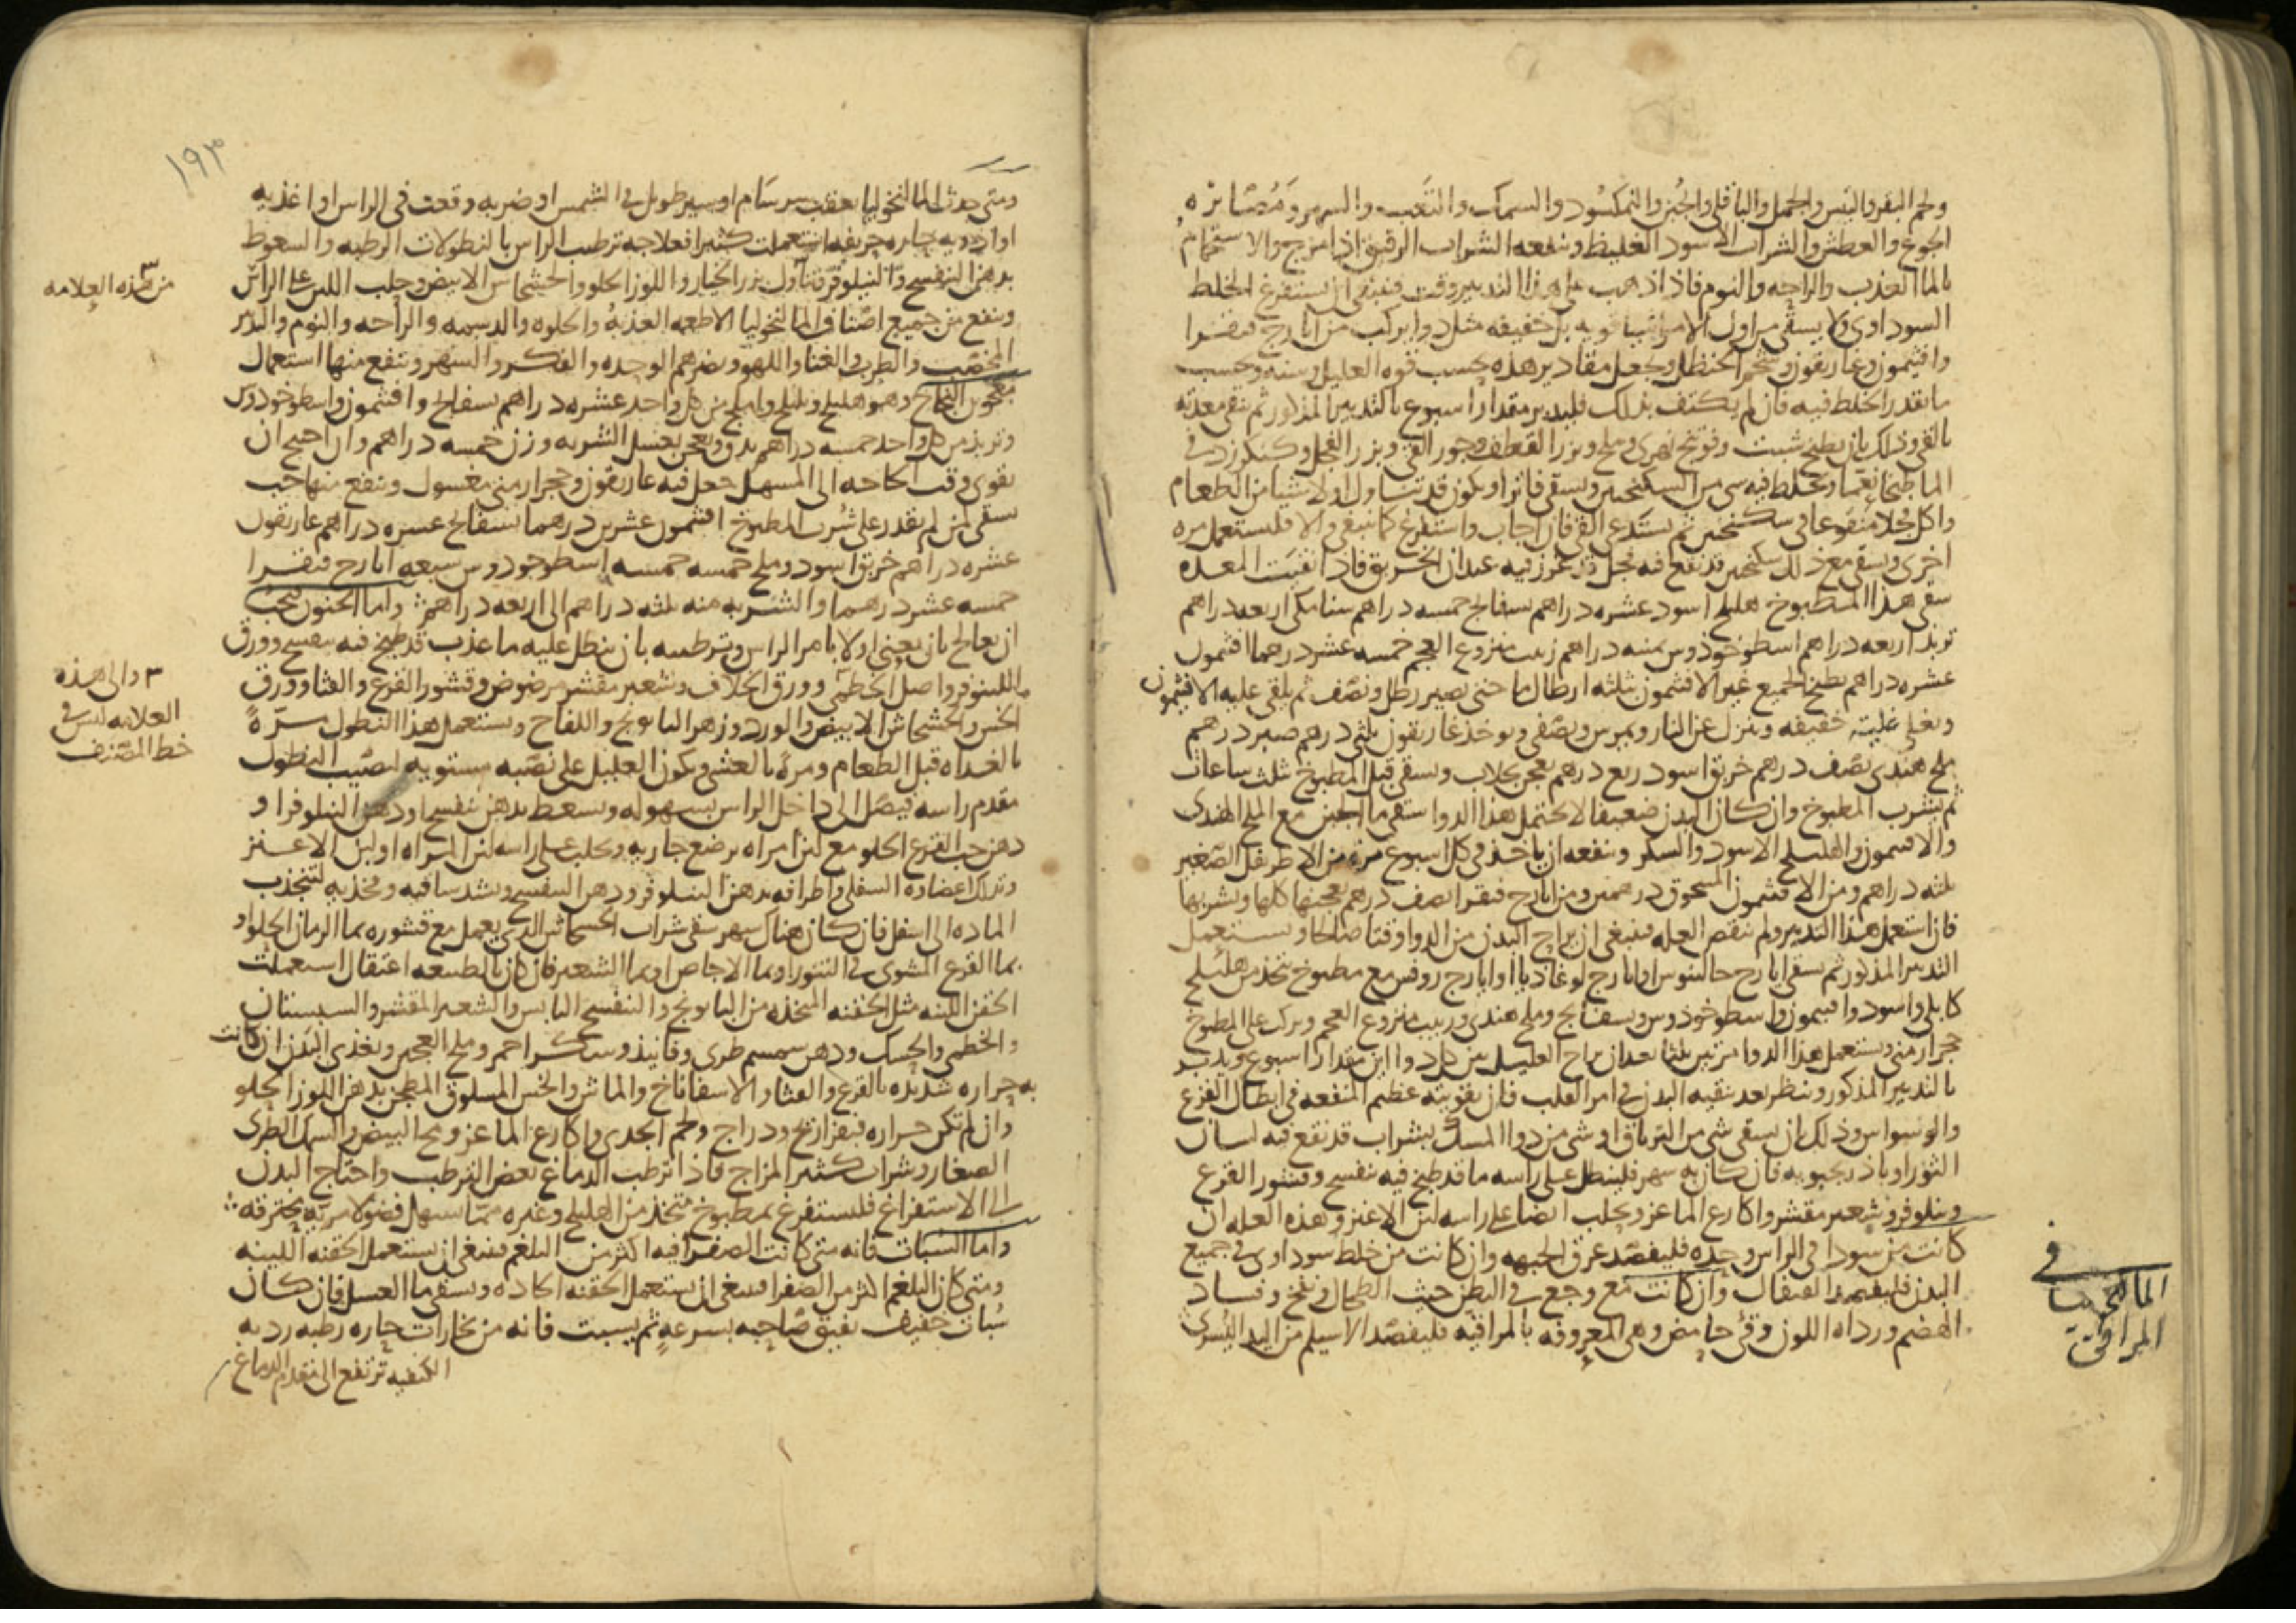 ولحم البقر والتيس والجمل والباقلي والجبن والنمكسود والسمك والتعب والسهر ومصابرة
الجوع والعطش والشراب الاسود الغليظ وينفعه الشراب الرقيق اذا مزج والاستحمام
بالما العذب والراحه والنوم فاذا ذهب على هذا التدبير وقت فينبغي ان يستفرغ الخلط
السوداوي ولا يسقى من اول الامر ادوية قويه بل خفيفه مثل دوا يركب من ايارج فيقرا
وافتيمون وغاريقون وشحم الحنظل ويجعل مقادير هذه بحسب قوه العليل وسنه وحسب
ما تقدر الخلط فيه فان لم يكتف بذلك فليدبر مقدار اسبوع بالتدبير المذكور ثم تنقى معدته
بالقي وذلك بان يطبخ شبت وفوتنج نهري وملح وبزر القطف وجوز القي وبزر الفجل وكنكرزد في
الما طبخا نعما ويخلط فيه شي من السكنجبين ويسقى فاترا ويكون قد تناول اولا شيا من الطعام
واكل فجلا منقوعا في سكنجبين ثم يستدعى القي فان اجاب واستفرغ كما ينبغي والا فليستعمل مره
اخرى ويسقى مع ذلك سكنجبين قد نقع فيه فجل قد غرز فيه عيدان الخربق فاذا نقيت المعده
سقي هذا المطبوخ هليلج اسود عشره دراهم بسفايج خمسه دراهم سنا مكي اربعه دراهم
تربد اربعه دراهم اسطوخوذوس ثمنيه دراهم زبيب منزوع العجم خمسه عشر درهما افتيمون
عشره دراهم يطبخ الجميع غير الافتيمون بثلثه ارطال ما حتى يصير رطل ونصف ثم يلقى عليه الافتيمون
ويغلى غليه خفيفه وينزل عن النار ويمرس ويصفى ويوخذ غاريقون ثلثي درهم صبر درهم
ملح هندي نصف درهم خربق اسود ربع درهم يعجن بجلاب ويسقى قبل المطبوخ ثلث ساعات
ثم يشرب المطبوخ وان كان البدن ضعيفا لا يحتمل هذا الدوا سقي ما الجبن مع الملح الهندي
والافتيمون والهليلج الاسود والسكر وينفعه ان ياخذ في كل اسبوع مره من الاطريفل الصغير
ثلثه دراهم ومن الافتيمون المسحوق درهمين ومن ايارج فيقرا نصف درهم يعجنها كلها ويشربها
فان استعمل هذا التدبير ولم تنقص العله فينبغي ان يراح البدن من الدوا وقتا صالحا ويستعمل
التدبير المذكور ثم يسقى ايارج جالينوس او ايارج لوغاذيا او ايارج روفس مع مطبوخ يتخذ من هليلج
كابلي واسود وافتيمون واسطوخوذوس وبسفايج وملح هندي وزبيب منزوع العجم ويركب على المطبوخ
حجر ارمني ويستعمل هذا الدوا مرتين ثلثا بعد ان يراح العليل بين كل دوا اين مقدار اسبوع ويدبر
بالتدبير المذكور وينظر بعد تنقيه البدن في امر القلب فان تقويته عظيم المنفعه في ابطال الفزع
والوسواس وذلك بان يسقى شي من الترياق او شي من دوا المسك بشراب قد نقع فيه لسان
الثور او باذرنجبويه فان كان به سهر فلينطل على راسه ما قد طبخ فيه بنفسج وقشور القرع
ونيلوفر وشعير مقشر واكارع الماعز ويحلب ايضا على راسه لبن الاعنز وهذه العله ان
كانت من سودا في الراس وحده فليفصد عرق الجبهه وان كانت من خلط سوداوي في جميع
البدن فليفصد القيفال وان كانت مع وجع في البطن حيث الطحال ونفخ وفساد
الهضم ورداه اللون وقي حامض وهي المعروفه بالمراقيه فليفصد الاسيلم من اليد اليسرى
في
المالنخوليا
المراقي
١٩٣
ومتى حدث المالنخوليا بعقب سرسام او سير طويل في الشمس او ضربه وقعت في الراس او اغذيه
او ادويه حاره حريفه استعملت كثيرا فعلاجه ترطيب الراس بالنطولات الرطبه والسعوط
بدهن البنفسج والنيلوفر وتناول بزر الخيار واللوز الحلو والخشخاش الابيض وحلب اللبن على الراس
وينفع من جميع اصناف المالنخوليا الاطعمه العذبه والحلوه والدسمه والراحه والنوم والتدبير
المخصب والطرب والغنا واللهو ويضرهم الوحده والفكر والسهر وينفع منها استعمال
معجون النجاح وهو هليلج وبليلج واملج من كل واحد عشره دراهم بسفايج وافتيمون واسطوخودوس
وتربد من كل واحد خمسه دراهم يدق ويعجن بعسل الشربه وزن خمسه دراهم وان احتيج ان
يقوى وقت الحاجه الى المسهل جعل فيه غاريقون وحجر ارمني مغسول وينفع منها حب
يسقى لمن لم يقدر على شرب المطبوخ افتيمون عشرين درهما بسفايج عشره دراهم غاريقون
عشره دراهم خربق اسود وملح خمسه خمسه اسطوخودوس سبعه ايارج فيقرا
خمسه عشر درهما والشربه منه ثلثه دراهم الى اربعه دراهم واما الجنون فيجب
ان يعالج بان يعنى اولا بامر الراس وترطيبه بان ينطل عليه ما عذب قد طبخ فيه بنفسج وورق
النيلوفر واصل الخطمي وورق الخلاف وشعير مقشر مرضوض وقشور القرع والقثا وورق
الخس والخشخاش الابيض والورد وزهر البابونج واللفاح ويستعمل هذا النطول مرة
بالغداه قبل الطعام ومرة بالعشي ويكون العليل على نصبه مستويه ليصيب النطول
مقدم راسه فيصل الى داخل الراس بسهوله ويسعط بدهن بنفسج او دهن النيلوفر او
دهن حب القرع الحلو مع لبن امراه ترضع جاريه ويحلب على راسه لبن المراه او لبن الاعنز
وتدلك اعضاوه السفلى واطرافه بدهن النيلوفر ودهن البنفسج وتشد ساقيه وفخذيه لتنجذب
الماده الى اسفل فان كان هناك سهر سقي شراب الخشخاش الذي يعمل مع قشوره بما الرمان الحلو او
بما القرع المشوي في التنور او بما الاجاص او بما الشعير فان كان بالطبيعه اعتقال استعملت
الحقن اللينه مثل الحقنه المتخذه من البابونج والبنفسج اليابس والشعير المقشر والسبستان
والخطمي والحسك ودهن سمسم طري وفانيذ وسكر احمر وملح العجين ويغذى البدن ان كانت
به حراره شديده بالقرع والقثا والاسفاناخ والماش والخس المسلوق المطجن بدهن اللوز الحلو
وان لم تكن حراره فبفراريج ودراج ولحم الجدي واكارع الماعز ومح البيض والسمك الطري
الصغار وشراب كثير المزاج فاذا ترطب الدماغ بعض الترطيب واحتاج البدن
الى الاستفراغ فليستفرغ بمطبوخ متخذ من الهليلج وغيره مما يسهل فضولا مريه محترقه
واما السبات فانه متى كانت الصفرا فيه اكثر من البلغم فينبغي ان يستعمل الحقنه اللينه
ومتى كان البلغم اكثر من الصفرا فينبغي ان يستعمل الحقنه الحاده ويسقى ما العسل فان كان
سبات خفيف يفيق صاحبه بسرعه ثم يسبت فانه من بخارات حاره رطبه رديه
الكيفيه ترتفع الى مقدم الدماغ
من هذه العلامه
والى هذه
العلامه ليس في
خط المصنف